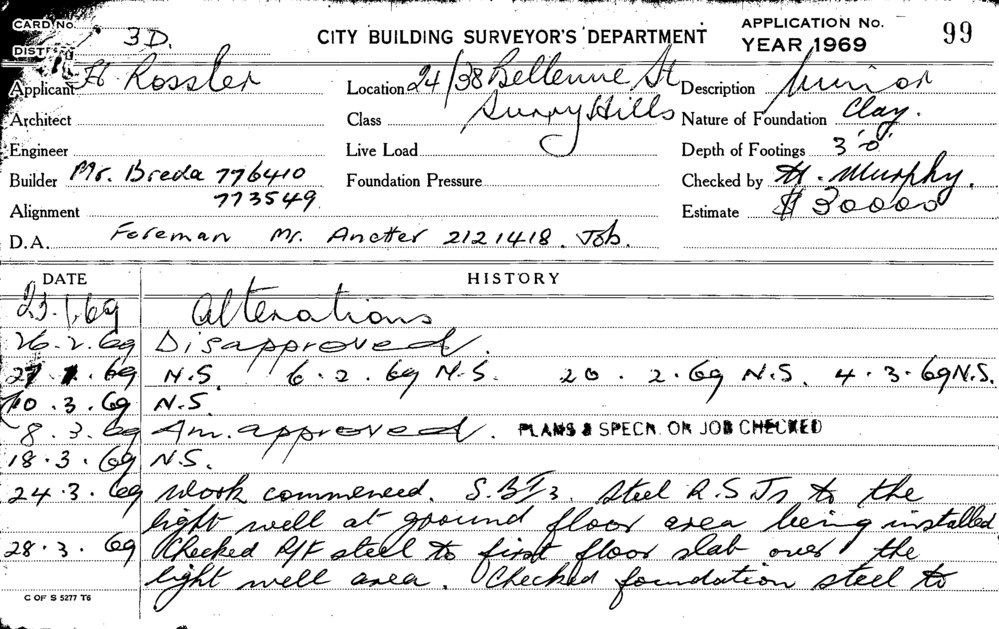 CARD No.
DIST. 3D. CITY BUILDING SURVEYOR'S DEPARTMENT APPLICATION No. 99
YEAR 1969
Applicant H Rossler Location 24/38 Bellevue St Description Junior
Architect Class Surry Hills Nature of Foundation Clay.
Engineer Live Load Depth of Footings 3'0"
Builder Mr. Breda 776410 Foundation Pressure Checked by H. Murphy.
773549
Alignment Estimate $30000
D.A. Foreman Mr. Ancher 2121418. Job.
DATE HISTORY
23.1.69 Alterations
26.2.69 Disapproved.
27.1.69 N.S. 6.2.69 N.S. 20.2.69 N.S. 4.3.69 N.S.
10.3.69 N.S.
8.3.69 Am. approved. PLANS & SPECN. ON JOB CHECKED
18.3.69 N.S.
24.3.69 Work commenced. Steel R.S.Js to the
light well at ground floor area being installed
28.3.69 Checked R/F steel to first floor slab over the
light well area. Checked foundation steel to
C OF S 5277 T6